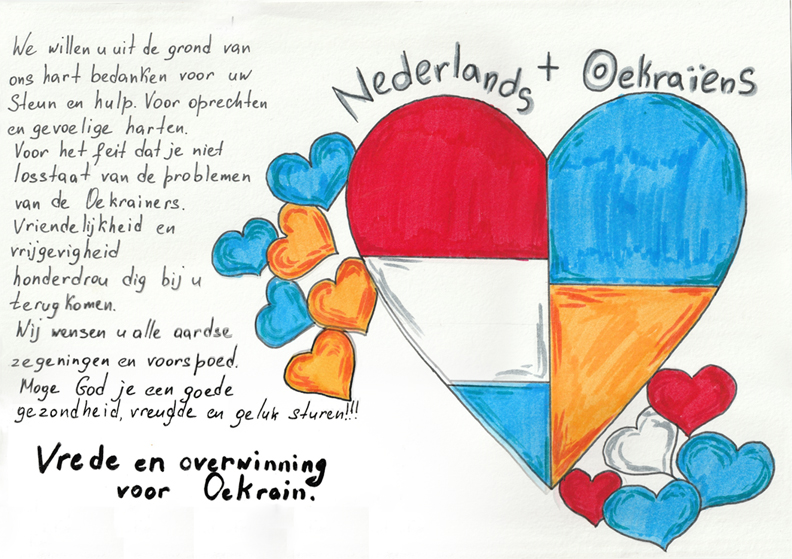 Nederlands + Oekraïens
We willen u uit de grond van
ons hart bedanken voor uw
Steun en hulp. Voor oprechten
en gevoelige harten.
Voor het feit dat je niet
losstaat van de problemen
van de Oekrainers.
Vriendelijkheid en
vrijgevigheid
honderdrou dig bij u
terug komen.
Wij wensen u alle aardse
zegeningen en voorspoed.
Moge God je een goede
gezondheid, vreugde en geluk sturen!!!
Vrede en overwinning
voor Oekrain.